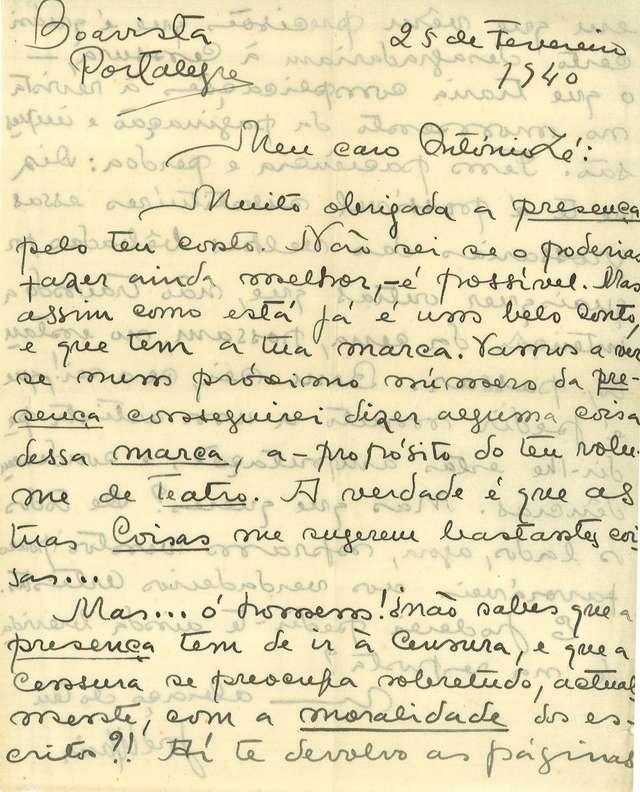 Boavista
Portalegre
25 de Fevereiro
1940
Meu caro António Zé:
Muito obrigada a presença
pelo teu conto. Não sei se o poderias
fazer ainda melhor, - é possível. Mas
assim como está já é um belo conto,
e que tem a tua marca. Vamos a ver
se num próximo número da pre-
sença conseguirei dizer alguma coisa
dessa marca, a-propósito do teu volu-
me de Teatro. A verdade é que as
tuas Coisas me sugerem bastantes coi-
sas...
Mas... ó homem! não sabes que a
presença tem de ir à Censura, e que a
Censura se preocupa sobretudo, actual
mente, com a moralidade dos es-
critos?! Aí te devolvo as páginas